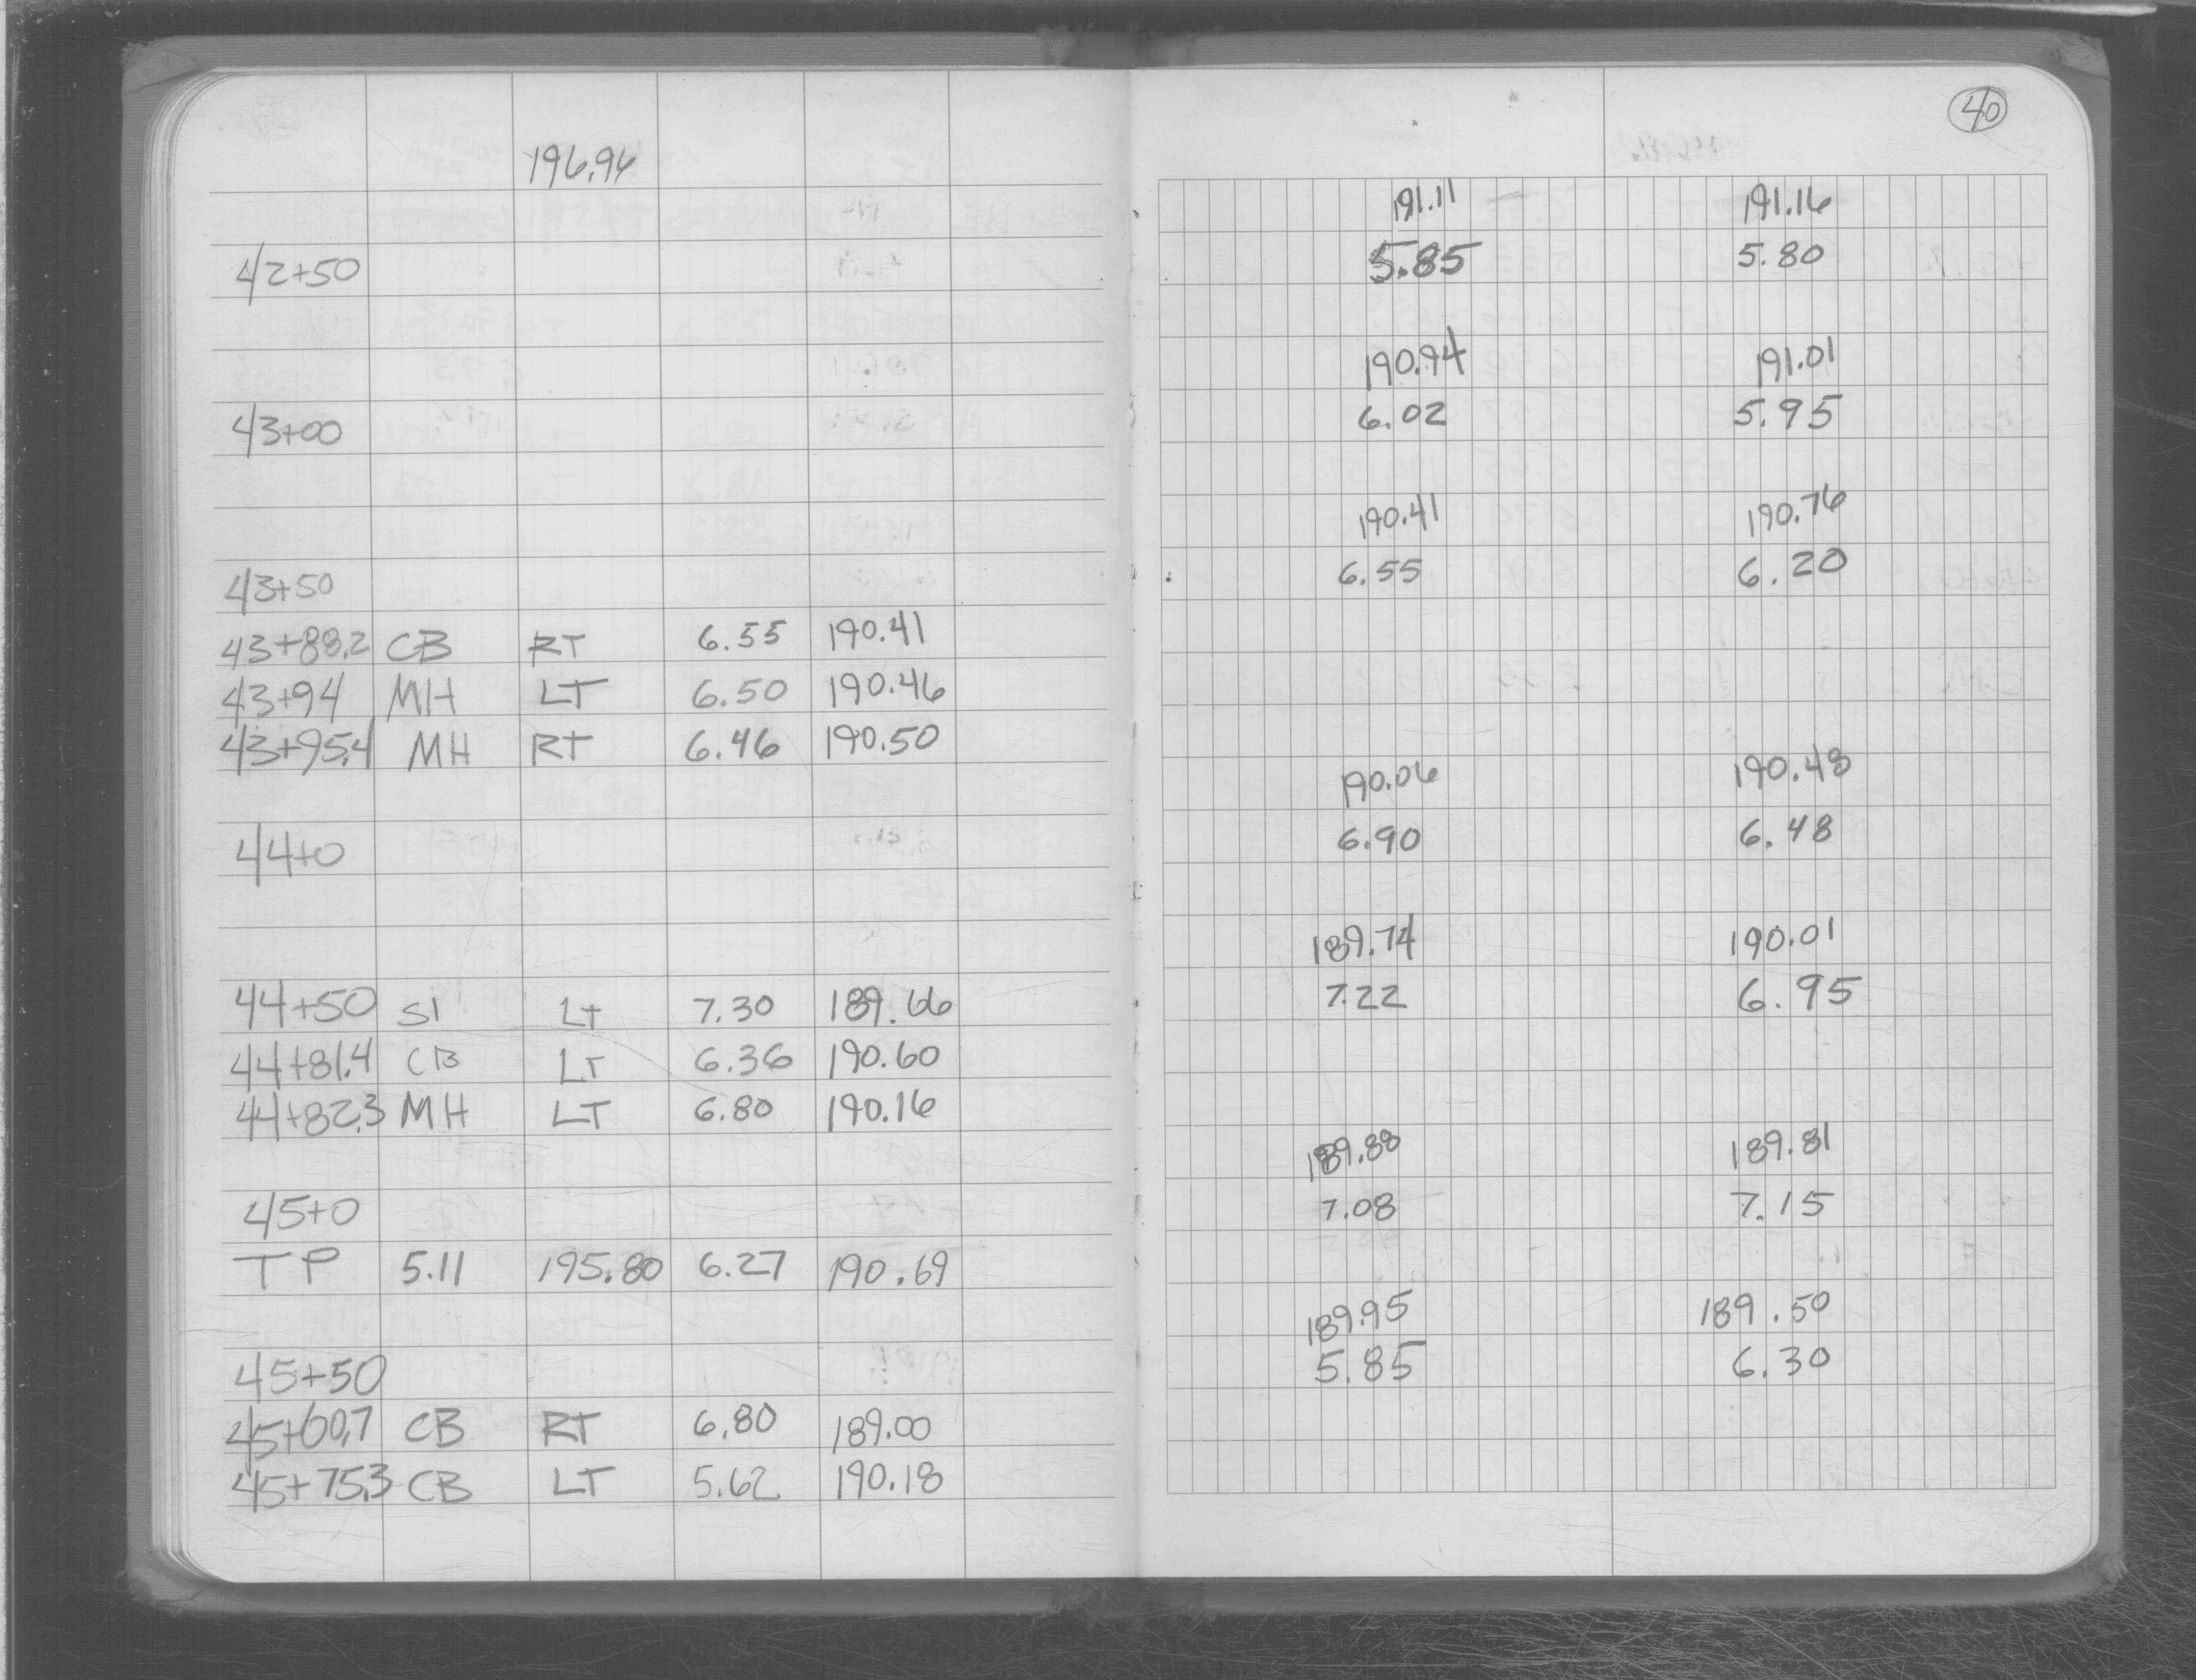 40
196.96
191.11 191.16
42+50 5.85 5.80
190.94 191.01
43+00 6.02 5.95
190.41 190.76
43+50 6.55 6.20
43+88.2 CB RT 6.55 190.41
43+94 MH LT 6.50 190.46
43+95.4 MH RT 6.46 190.50
190.06 190.48
44+0 6.90 6.48
189.74 190.01
44+50 SI Lt 7.30 189.66 7.22 6.95
44+81.4 CB LT 6.36 190.60
44+82.3 MH LT 6.80 190.16
189.88 189.81
45+0 7.08 7.15
TP 5.11 195.80 6.27 190.69
189.95 189.50
45+50 5.85 6.30
45+60.7 CB RT 6.80 189.00
45+75.3 CB LT 5.62 190.18